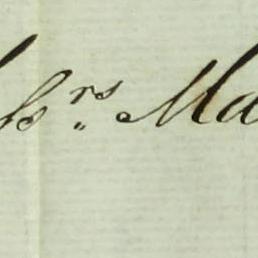 ssrs Ma